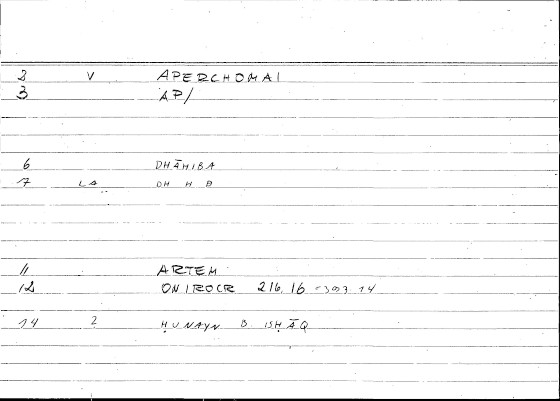 2 V APERCHOMAI
3 AP/
6 DHĀHIBA
7 LA DH H B
11 ARTEM
12 ONIROCR 216,16 - 393,14
14 2 ḤUNAYN B. ISḤĀQ